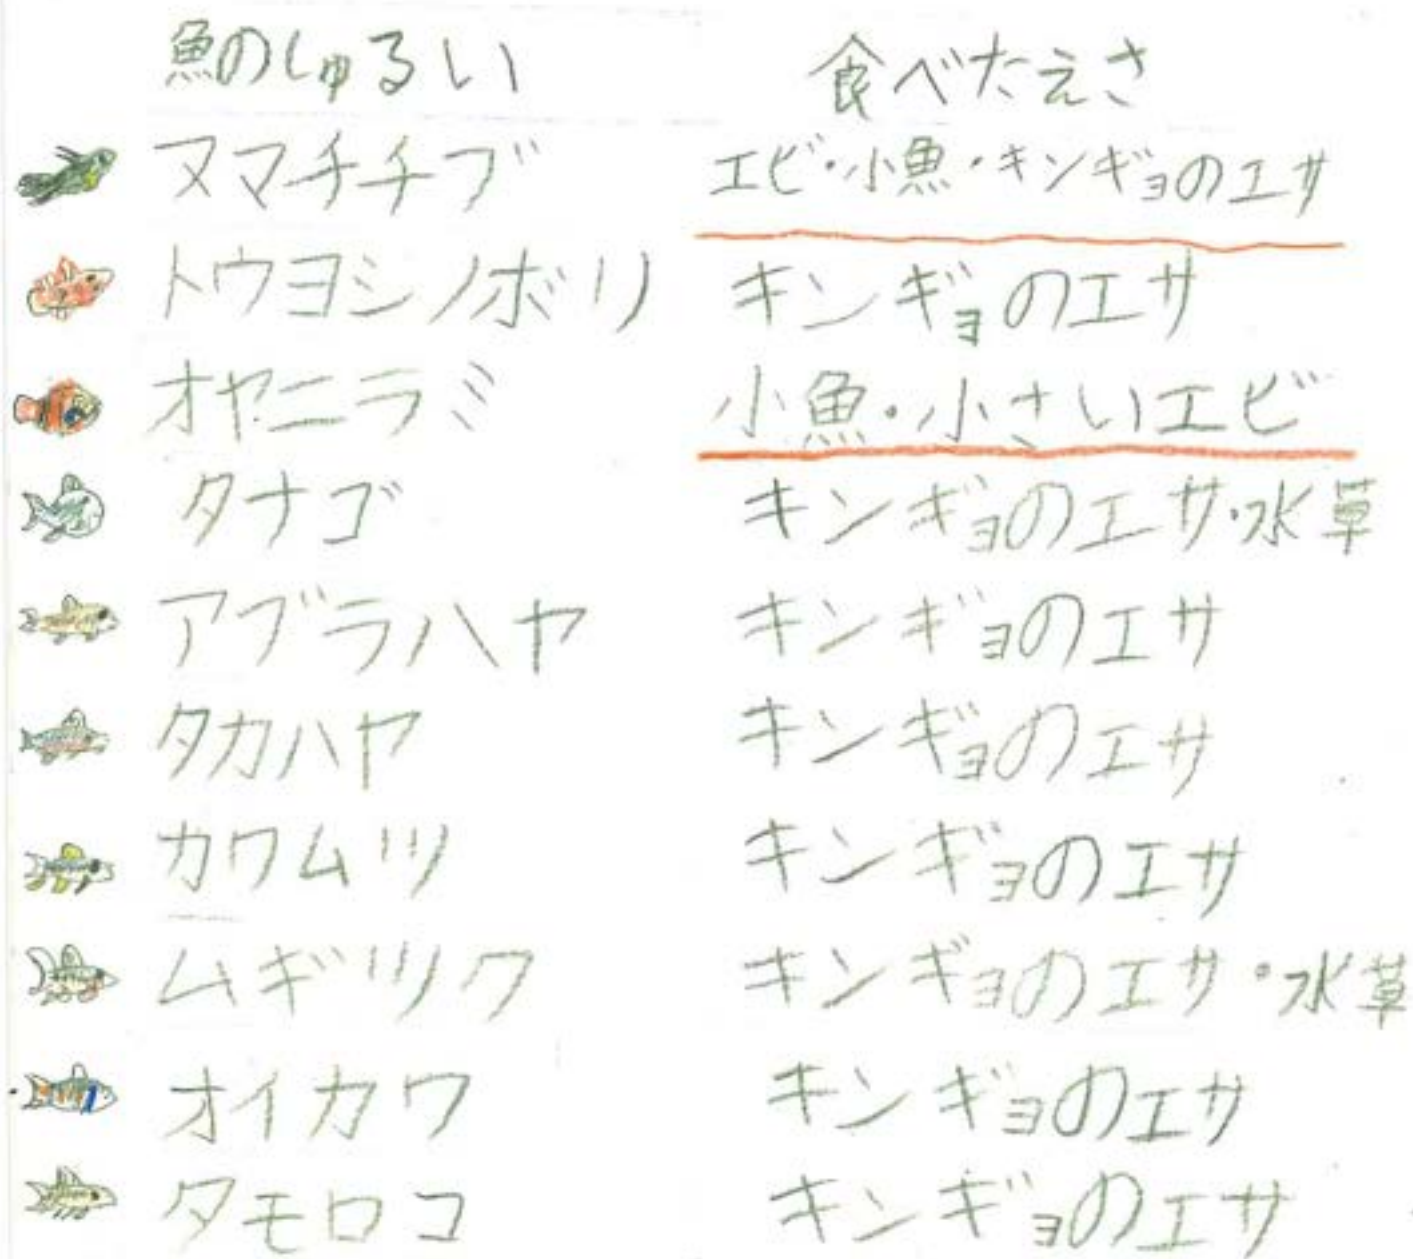 魚のしゅるい 食べたえさ
ヌマチチブ エビ・小魚・キンギョのエサ
トウヨシノボリ キンギョのエサ
オヤニラミ 小魚・小さいエビ
タナゴ キンギョのエサ・水草
アブラハヤ キンギョのエサ
タカハヤ キンギョのエサ
カワムツ キンギョのエサ
ムギツク キンギョのエサ・水草
オイカワ キンギョのエサ
タモロコ キンギョのエサ